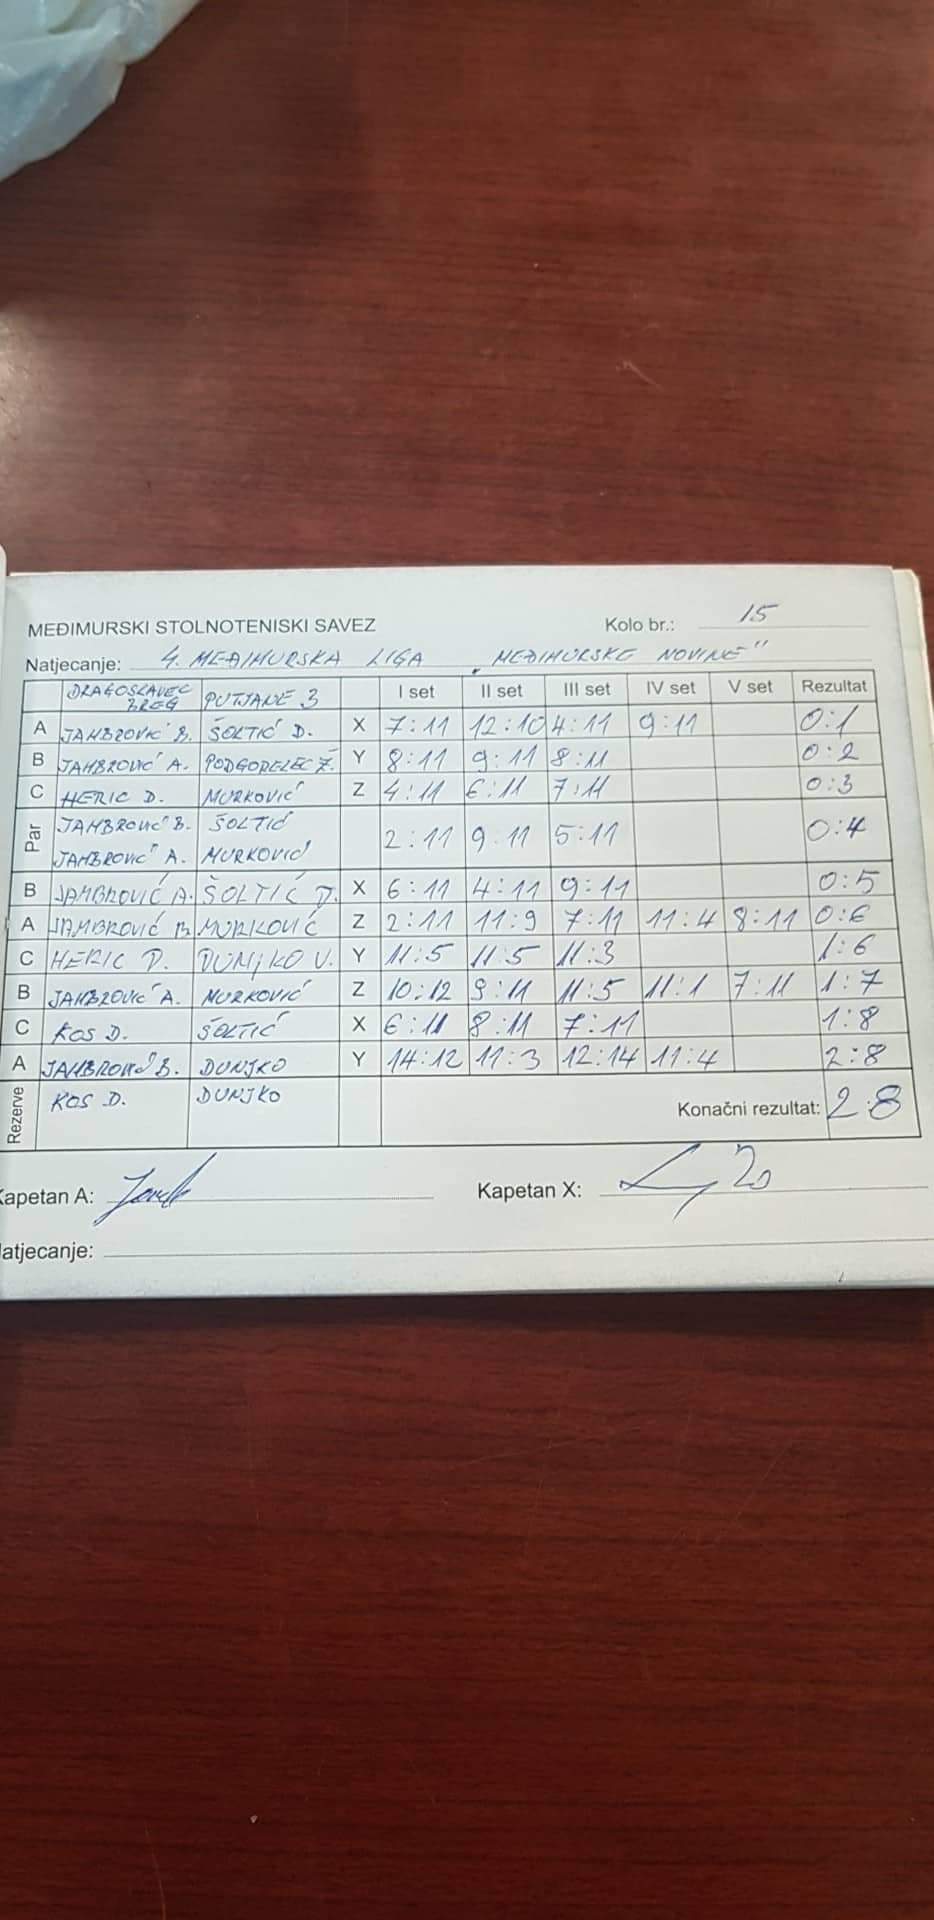 MEĐIMURSKI STOLNOTENISKI SAVEZ Kolo br.: 15
Natjecanje: 4. MEĐIMURSKA LIGA „MEĐIMURSKE NOVINE"
DRAGOSLAVEC BREG PUTJANE 3 I set II set III set IV set V set Rezultat
A JAMBROVIĆ B. ŠOLTIĆ D. X 7:11 12:10 4:11 9:11 0:1
B JAMBROVIĆ A. PODGORELEC Ž. Y 8:11 9:11 8:11 0:2
C HERIC D. MURKOVIĆ Z 4:11 6:11 7:11 0:3
Par JAMBROVIĆ B. ŠOLTIĆ
JAMBROVIĆ A. MURKOVIĆ 2:11 9:11 5:11 0:4
B JAMBROVIĆ A. ŠOLTIĆ D. X 6:11 4:11 9:11 0:5
A JAMBROVIĆ B. MURKOVIĆ Z 2:11 11:9 7:11 11:4 8:11 0:6
C HERIC D. DUNJKO V. Y 11:5 11:5 11:3 1:6
B JAMBROVIĆ A. MURKOVIĆ Z 10:12 9:11 11:5 11:1 7:11 1:7
C KOS D. ŠOLTIĆ X 6:11 8:11 7:11 1:8
A JAMBROVIĆ B. DUNJKO Y 14:12 11:3 12:14 11:4 2:8
Rezerve KOS D. DUNJKO Konačni rezultat: 2:8
Kapetan A: Kapetan X:
Natjecanje: